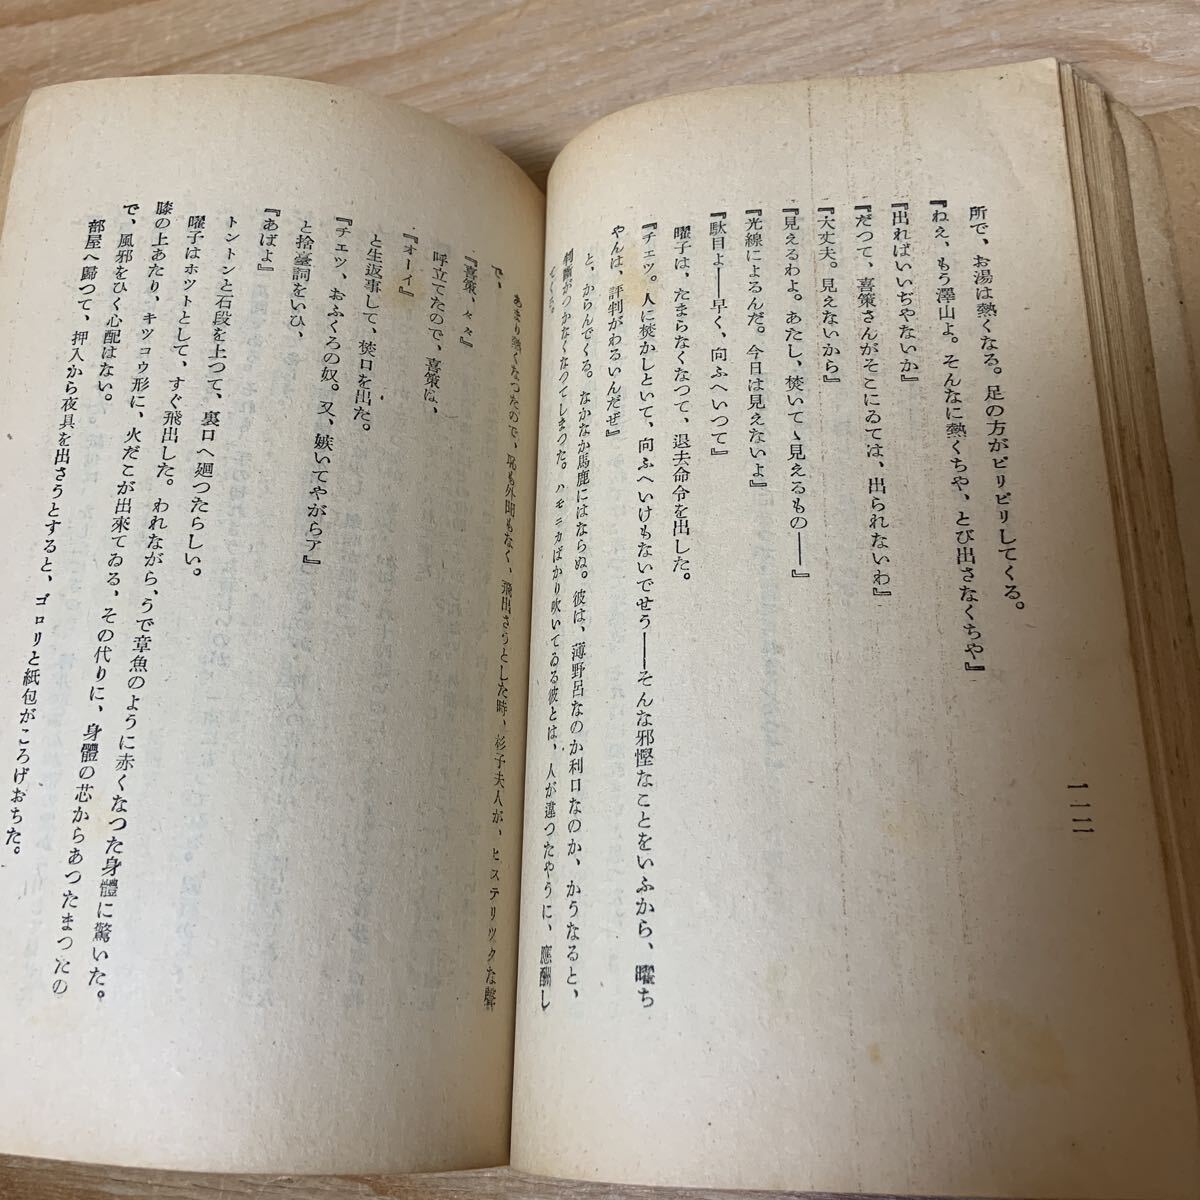 一一二
所で、お湯は熱くなる。足の方がピリピリしてくる。
『ねえ、もう澤山よ。そんなに熱くちや、とび出さなくちや』
『出ればいいぢやないか』
『だつて、喜策さんがそこにゐては、出られないわ』
『大丈夫。見えないから』
『見えるわよ。あたし、焚いてゝ見えるもの――』
『光線によるんだ。今日は見えないよ』
『駄目よ――早く、向ふへいつて』
曜子は、たまらなくなつて、退去命令を出した。
『チェツ。人に焚かしといて、向ふへいけもないでせう――そんな邪慳なことをいふから、曜ち
やんは、評判がわるいんだぜ』
と、からんでくる。なかなか馬鹿にはならぬ。彼は、薄野呂なのか利口なのか、かうなると、
判斷がつかなくなつてしまつた。ハモニカばかり吹いてゐる彼とは、人が違つたやうに、應酬し
てくる。
あまり熱くなつたので、恥も外聞もなく、飛出さうとした時、杉子夫人が、ヒステリツクな聲
で、
『喜策、々々』
呼立てたので、喜策は、
『オーイ』
と生返事して、焚口を出た。
『チェツ、おふくろの奴。又、嫉いてやがらア』
と捨臺詞をいひ、
『あばよ』
トントンと石段を上つて、裏口へ廻つたらしい。
曜子はホツトとして、すぐ飛出した。われながら、うで章魚のように赤くなつた身體に驚いた。
膝の上あたり、キツコウ形に、火だこが出來てゐる、その代りに、身體の芯からあつたまつたの
で、風邪をひく心配はない。
部屋へ歸つて、押入から夜具を出さうとすると、ゴロリと紙包がころげおちた。